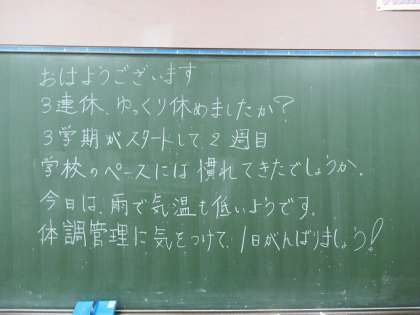 おはようございます
3連休、ゆっくり休めましたか?
3学期がスタートして、2週目
学校のペースには慣れてきたでしょうか。
今日は、雨で気温も低いようです。
体調管理に気をつけて、1日がんばりましょう!